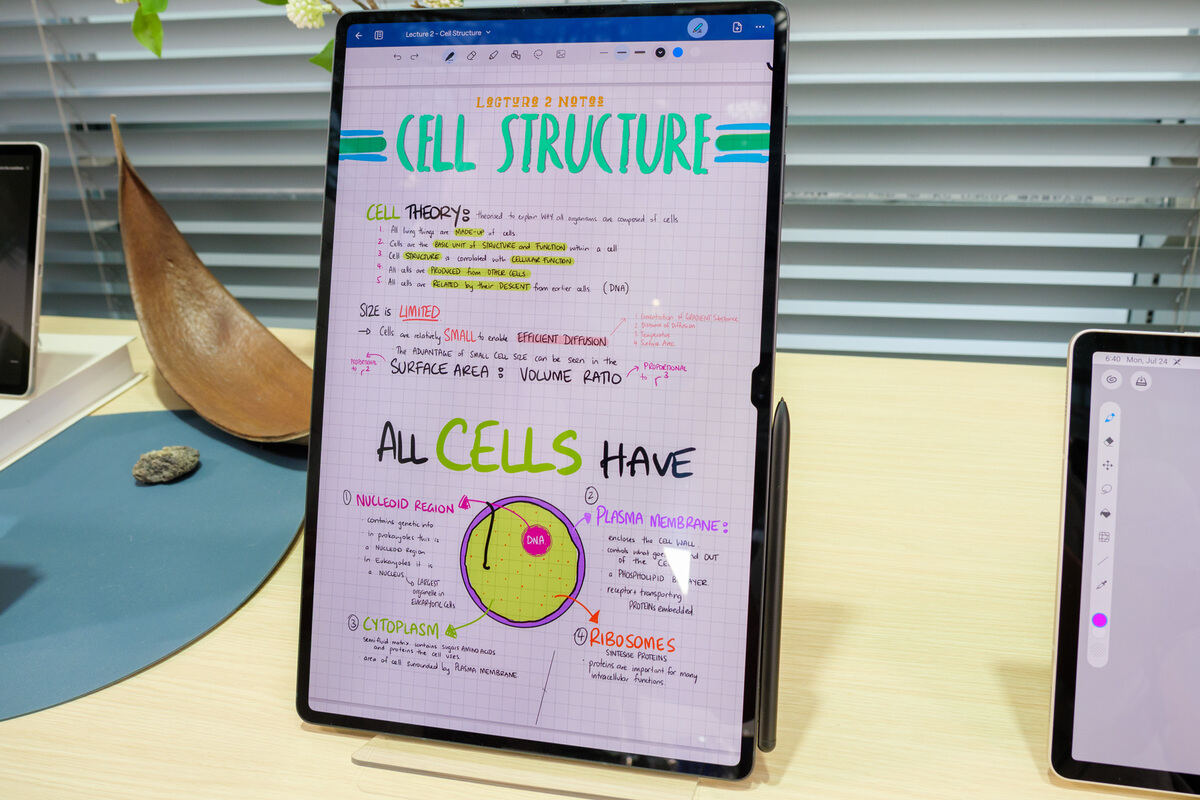 Lecture 2 - Cell Structure
LECTURE 2 NOTES
CELL STRUCTURE
CELL THEORY: theorised to explain WHY all organisms are composed of cells
1. All living things are MADE-UP of cells
2. Cells are the BASIC UNIT of STRUCTURE and FUNCTION within a cell
3. Cell STRUCTURE is correlated with CELLULAR FUNCTION
4. All cells are PRODUCED from OTHER CELLS
5. All cells are RELATED by their DESCENT from earlier cells (DNA)
SIZE is LIMITED
→ Cells are relatively SMALL to enable EFFICIENT DIFFUSION
1. Concentration of GRADIENT Substance
2. Distance of Diffusion
3. Temperature
4. Surface Area
The ADVANTAGE OF SMALL CELL SIZE can be seen in the
PROPORTIONAL to r2
SURFACE AREA : VOLUME RATIO
PROPORTIONAL to r3
ALL CELLS HAVE
① NUCLEOID REGION
· contains genetic info
· in prokaryotes this is
a NUCLEOID Region
· in Eukaryotes it is
a NUCLEUS
LARGEST
organelle in
EUKARYOTIC CELLS
DNA
② PLASMA MEMBRANE:
encloses the CELL WALL
controls what and OUT
OF the
a PHOSPHOLIPID
receptor transporting
PROTEINS embedded
③ CYTOPLASM
semifluid matrix contains sugars AMINO ACIDS
and proteins the cell uses
area of cell surrounded by PLASMA MEMBRANE
④ RIBOSOMES
SINTESISE PROTEINS
· proteins are important for many
intracellular functions.
6:40 Mon, Jul 24